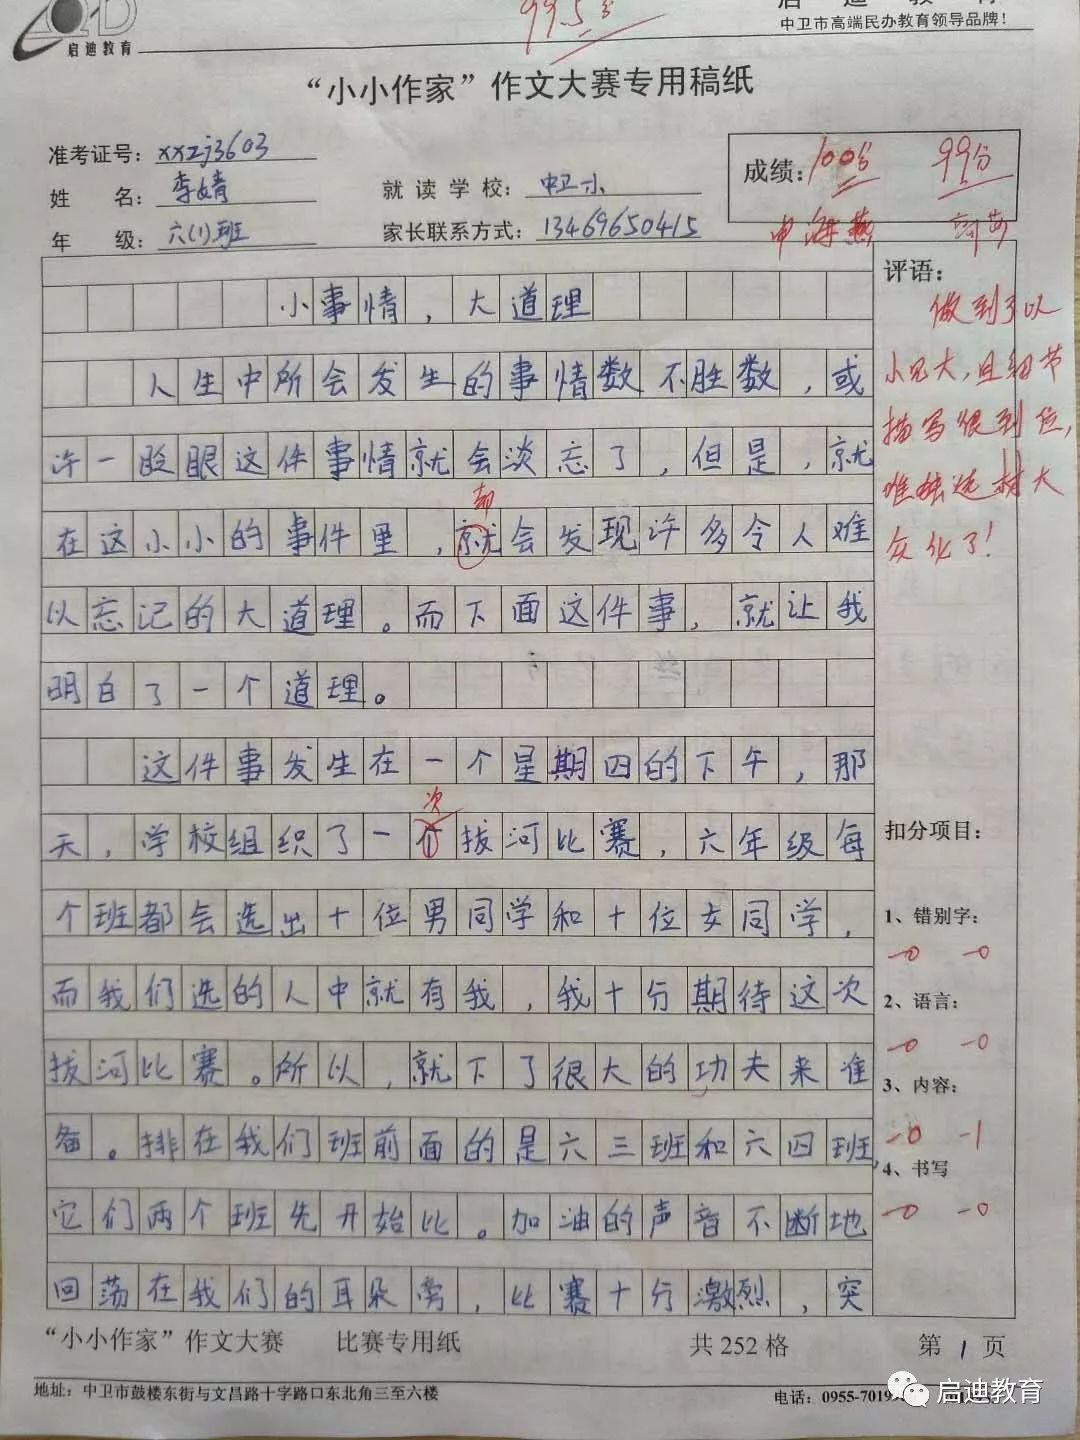 启迪教育
99.5分
启迪教育
中卫市高端民办教育领导品牌!
“小小作家”作文大赛专用稿纸
准考证号: xxzj3603
姓名: 李婧
就读学校: 中卫小
年级: 六(1)班
家长联系方式: 13469650415
成绩: 100分 99分
申海燕
小事情,大道理
人生中所会发生的事情数不胜数,或
许一眨眼这件事情就会淡忘了,但是,就
却
在这小小的事件里,就会发现许多令人难
以忘记的大道理。而下面这件事,就让我
明白了一个道理。
这件事发生在一个星期四的下午,那
次
天,学校组织了一个拔河比赛,六年级每
个班都会选出十位男同学和十位女同学,
而我们选的人中就有我,我十分期待这次
拔河比赛。所以,就下了很大的功夫来准
备。排在我们班前面的是六三班和六四班,
它们两个班先开始比。加油的声音不断地
回荡在我们的耳朵旁,比赛十分激烈,突
评语:
做到了以
小见大,且细节
描写很到位,
唯独选材大
众化了!
扣分项目:
1、错别字:
-0 -0
2、语言:
-0 -0
3、内容:
-0 -1
4、书写
-0 -0
“小小作家”作文大赛 比赛专用纸 共252格 第1页
地址: 中卫市鼓楼东街与文昌路十字路口东北角三至六楼
电话: 0955-7019
启迪教育